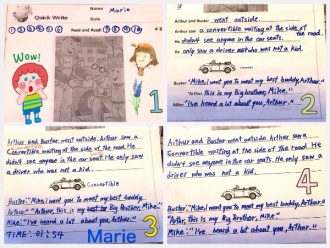 Name Marie
Quick Write
Read and Read!
1 2 3 4 5 6
7 8 9 10
Wow!
1
Arthur and Buster went outside.
Arthur saw a convertible waiting at the side of the road.
He didn't see anyone in the car seats.
He only saw a driver who was not a kid.
Buster: "Mike! I want you to meet my best buddy, Arthur."
"Arthur, this is my big brother, Mike."
Mike: "I've heard a lot about you, Arthur."
2
Arthur and Buster went outside. Arthur saw a
Convertible waiting at the side of the road. He
didn't see anyone in the car seat. He only saw
a driver who was not a kid.
Convertible
Buster: "Mike! I want you to meet my best buddy, Arthur."
"Arthur, this is my big Brother, Mike."
Mike: "I've heard a lot about you, Arthur."
TIME: 01:54
Marie
3
Arthur and Buster went outside. Arthur saw a
convertible waiting at the side of the road. He
didn't see anyone in the car seat. He only saw a driver
who was not a kid.
Buster: "Mike! I want you to meet my best buddy, Arthur."
this is my big brother, Mike."
Mike: "I've heard a lot about you, Arthur."
4